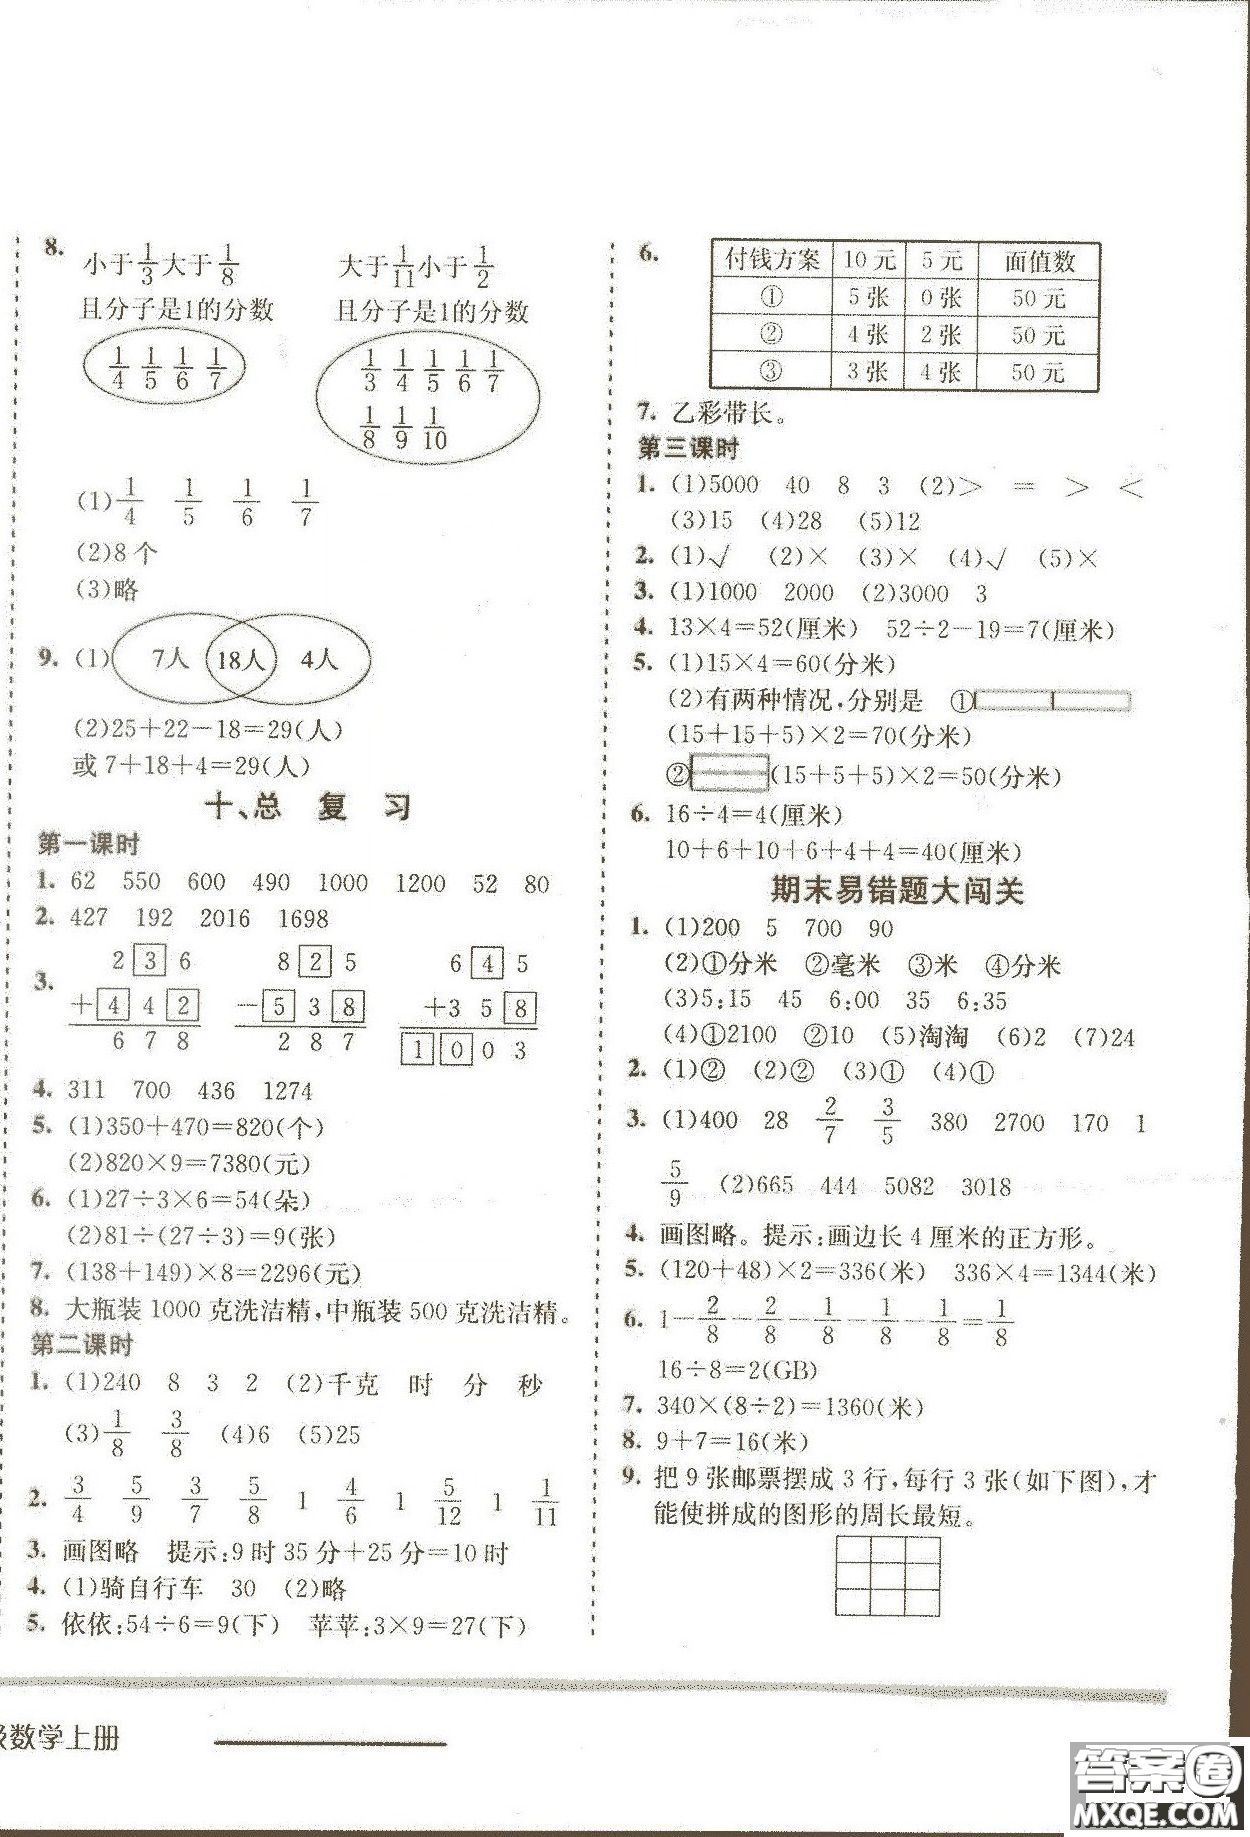 8.
小于1/3大于1/8
且分子是1的分数
1/4 1/5 1/6 1/7
大于1/11小于1/2
且分子是1的分数
1/3 1/4 1/5 1/6 1/7
1/8 1/9 1/10
(1)1/4 1/5 1/6 1/7
(2)8个
(3)略
9. (1) 7人 18人 4人
(2)25+22-18=29(人)
或7+18+4=29(人)
十、总 复 习
第一课时
1. 62 550 600 490 1000 1200 52 80
2. 427 192 2016 1698
3.
2 3 6
+ 4 4 2
6 7 8
8 2 5
- 5 3 8
2 8 7
6 4 5
+3 5 8
1 0 0 3
4. 311 700 436 1274
5. (1)350+470=820(个)
(2)820×9=7380(元)
6. (1)27÷3×6=54(朵)
(2)81÷(27÷3)=9(张)
7. (138+149)×8=2296(元)
8. 大瓶装1000克洗洁精,中瓶装500克洗洁精。
第二课时
1. (1)240 8 3 2 (2)千克 时 分 秒
(3)1/8 3/8 (4)6 (5)25
2. 3/4 5/9 3/7 5/8 1 4/6 1 5/12 1 1/11
3. 画图略 提示:9时35分+25分=10时
4. (1)骑自行车 30 (2)略
5. 依依:54÷6=9(下) 苹苹:3×9=27(下)
6.
付钱方案 10元 5元 面值数
① 5张 0张 50元
② 4张 2张 50元
③ 3张 4张 50元
7. 乙彩带长。
第三课时
1. (1)5000 40 8 3 (2)> = > <
(3)15 (4)28 (5)12
2. (1)√ (2)× (3)× (4)√ (5)×
3. (1)1000 2000 (2)3000 3
4. 13×4=52(厘米) 52÷2-19=7(厘米)
5. (1)15×4=60(分米)
(2)有两种情况,分别是 ①
(15+15+5)×2=70(分米)
② (15+5+5)×2=50(分米)
6. 16÷4=4(厘米)
10+6+10+6+4+4=40(厘米)
期末易错题大闯关
1. (1)200 5 700 90
(2)①分米 ②毫米 ③米 ④分米
(3)5:15 45 6:00 35 6:35
(4)①2100 ②10 (5)淘淘 (6)2 (7)24
2. (1)② (2)② (3)① (4)①
3. (1)400 28 2/7 3/5 380 2700 170 1
5/9 (2)665 444 5082 3018
4. 画图略。提示:画边长4厘米的正方形。
5. (120+48)×2=336(米) 336×4=1344(米)
6. 1-2/8-2/8-1/8-1/8-1/8=1/8
16÷8=2(GB)
7. 340×(8÷2)=1360(米)
8. 9+7=16(米)
9. 把9张邮票摆成3行,每行3张(如下图),才
能使拼成的图形的周长最短。
级数学上册
答案圈
MXQE.COM